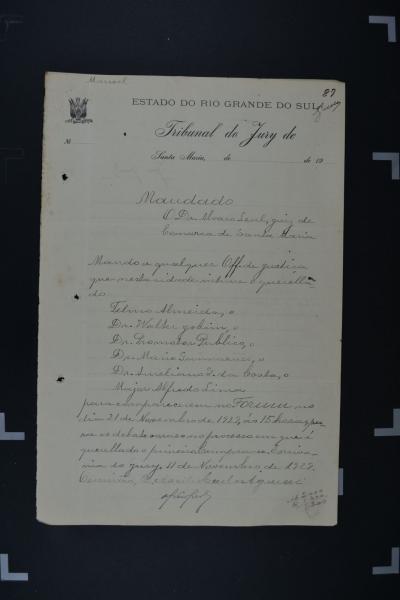 Manoel
87
ESTADO DO RIO GRANDE DO SUL
Tribunal do Jury de
Nº
Santa Maria, de de 19
Mandado
O Dr. Alvaro Leal, juiz de
Comarca de Santa Maria
Mando a qualquer Off. de justiça
que nesta cidade intime o querella-
do
Telmo Almeida, o
Dr. Walter Jobim, o
Dr. Promotor Publico, o
Dr. Mario, o
Dr. Aureliano da Costa, o
Major Alfredo Lima
para comparecerem no Forum no
dia 21 de Novembro de 1927, ás 15 horas, pa
ra os debates oraes no processo em que é
querellado o primeiro. Cumpra-se. Escriva-
nia do jury, 11 de Novembro de 1927.
Escrivão,